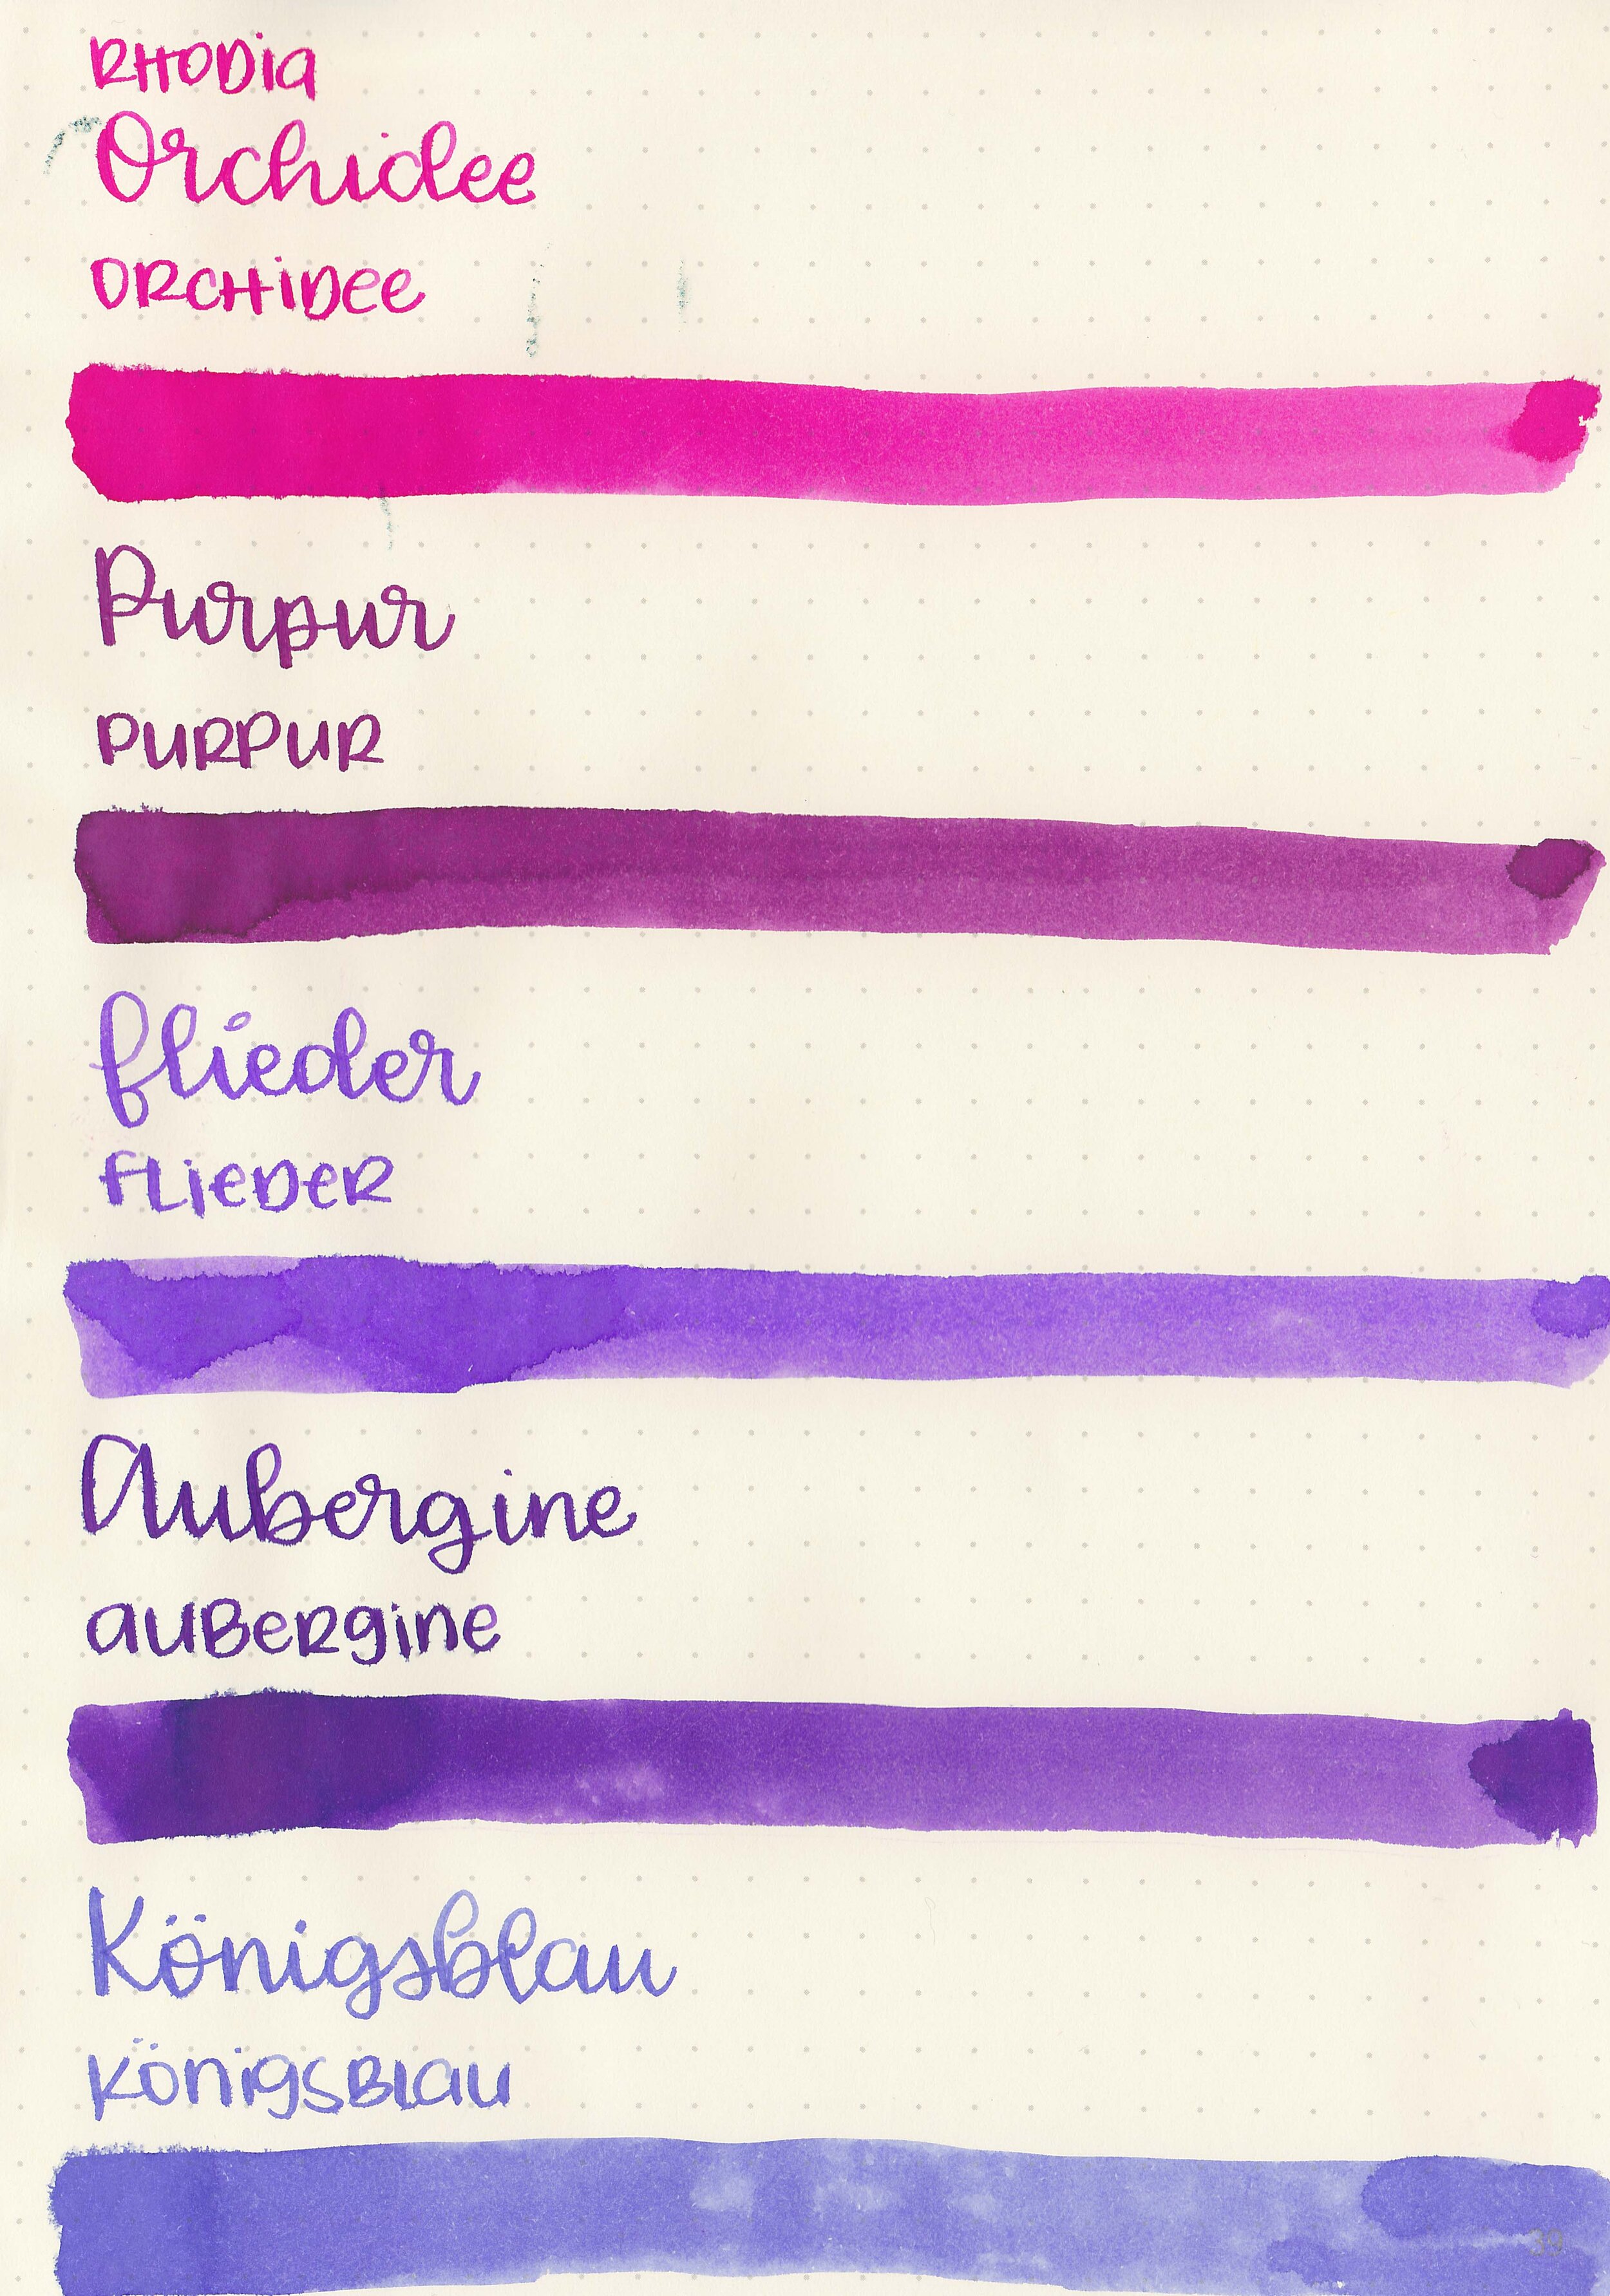 RHODia
Orchidee
ORCHiDee
Purpur
PURPUR
flieder
FLieDeR
Aubergine
aUBeRgine
Königsblau
KönigsBlau
39